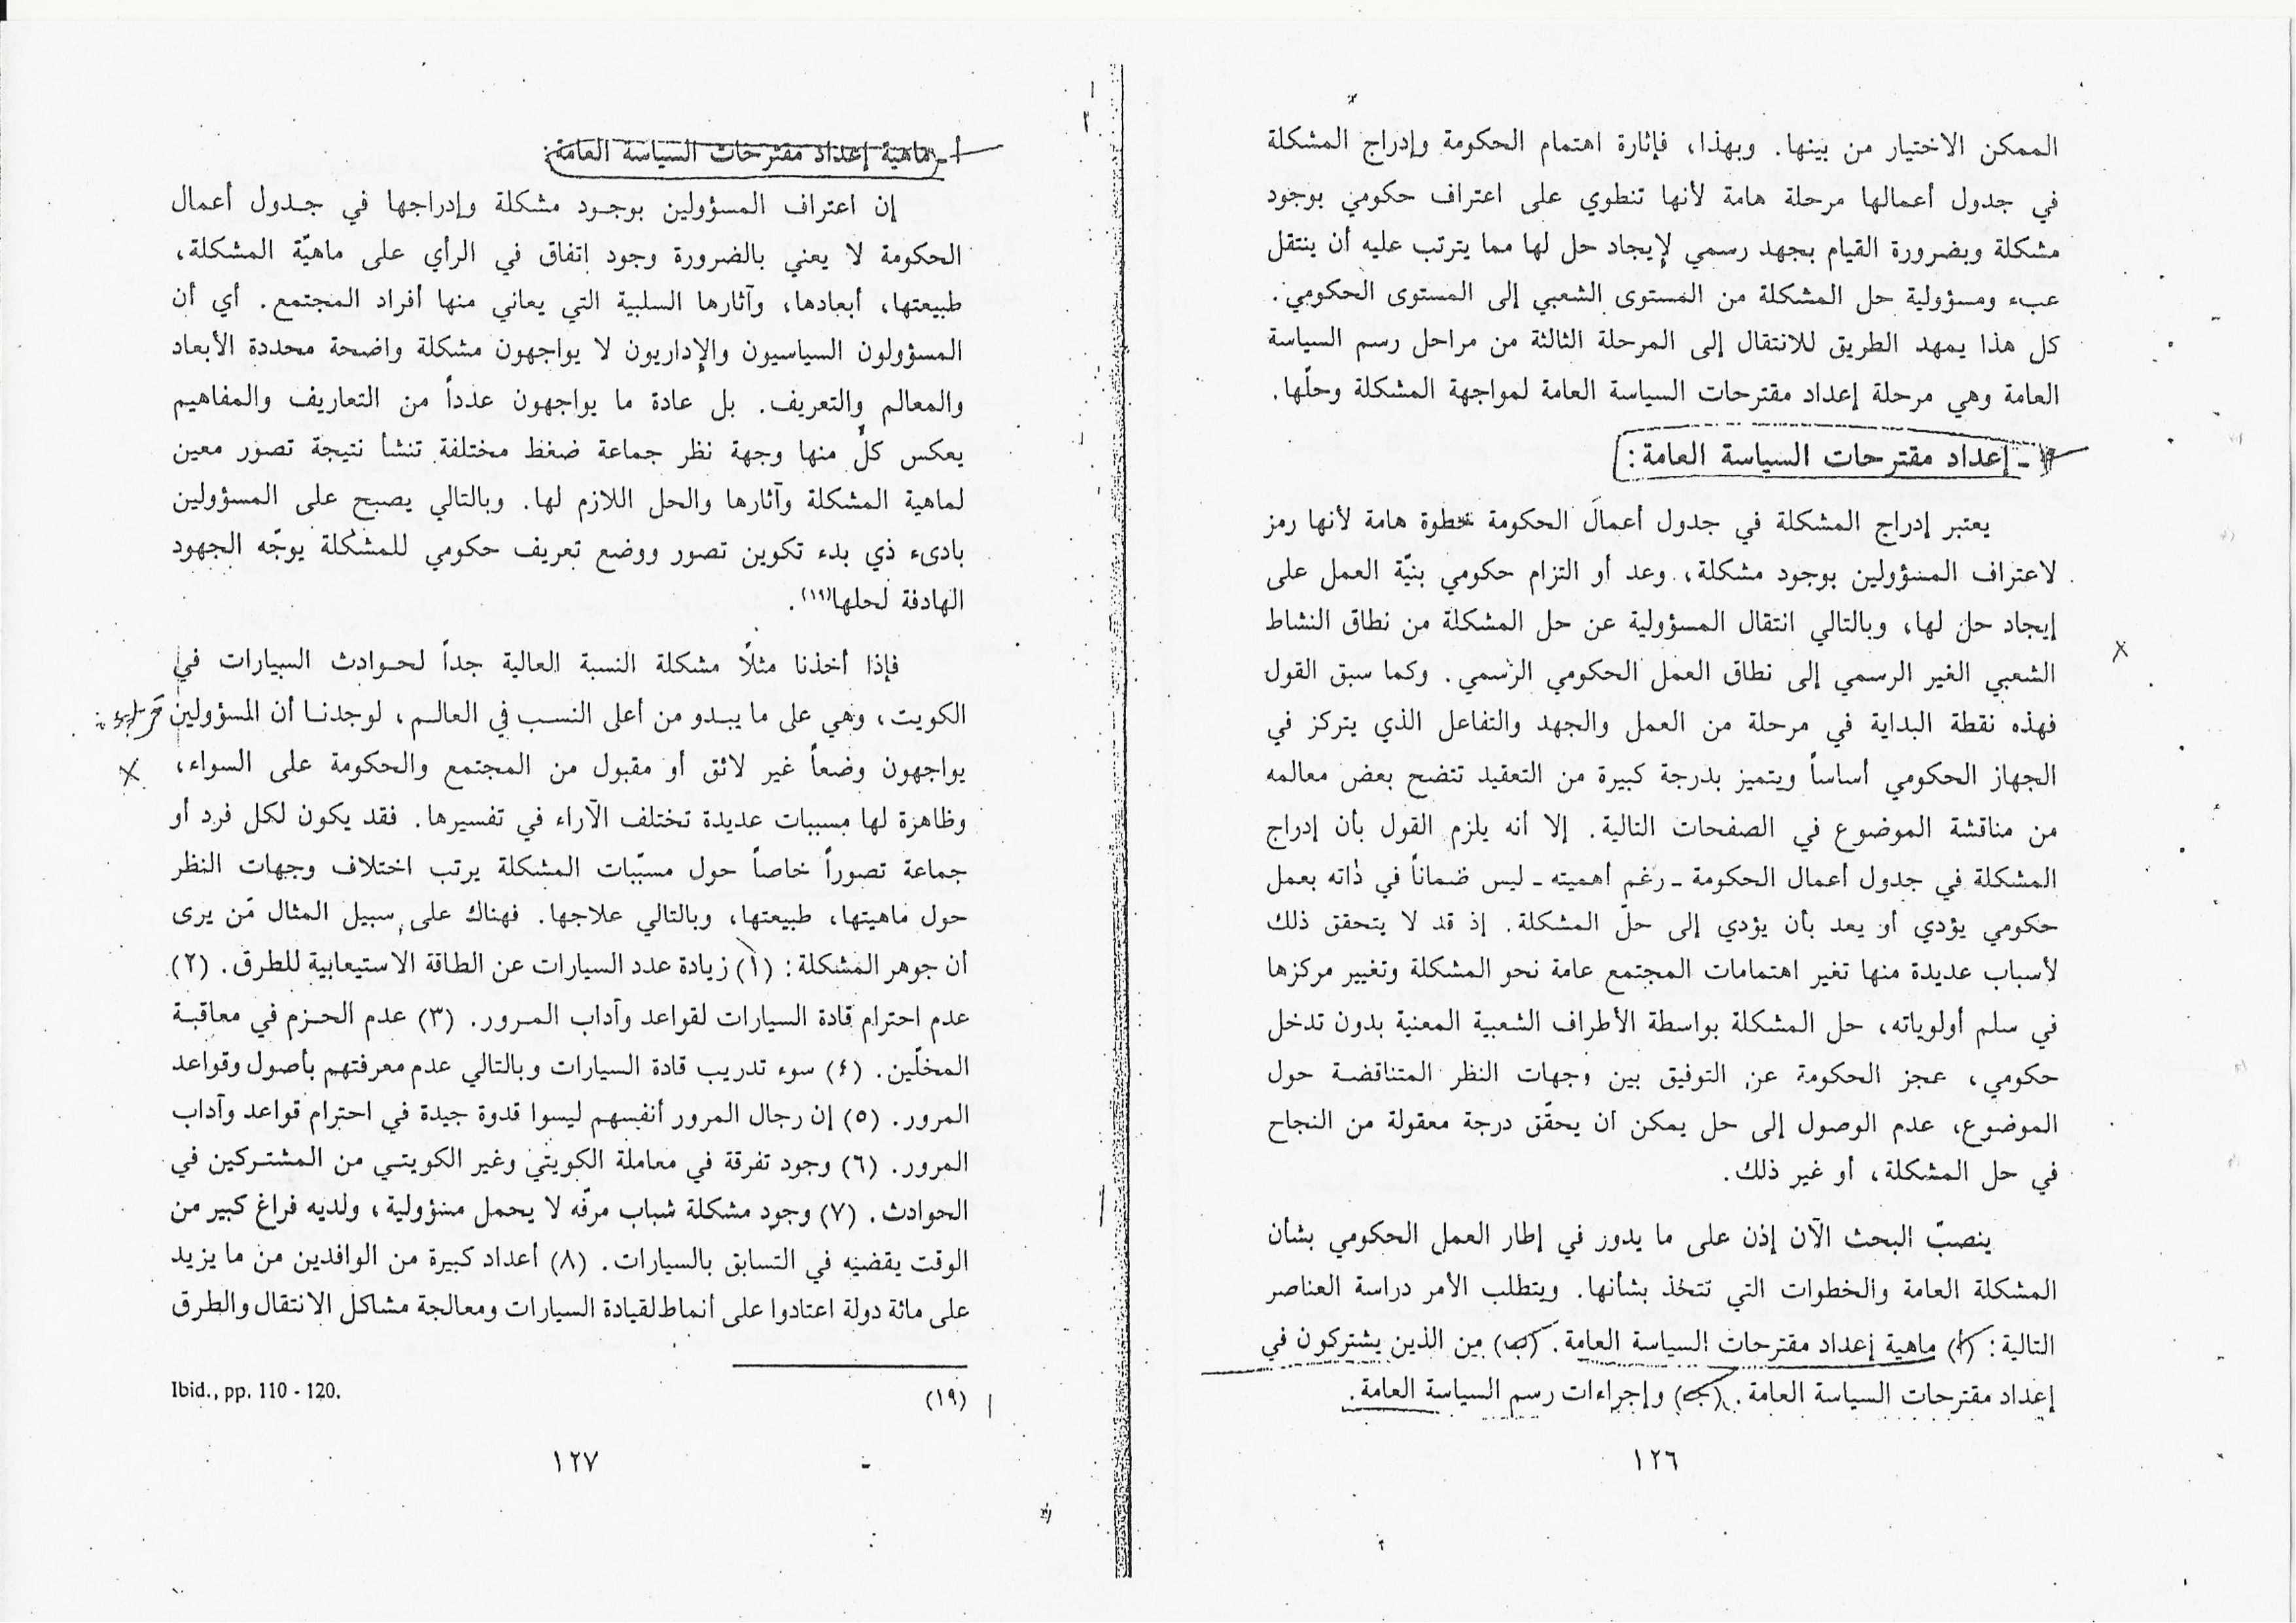 الممكن الاختيار من بينها. وبهذا، فإثارة اهتمام الحكومة وإدراج المشكلة
في جدول أعمالها مرحلة هامة لأنها تنطوي على اعتراف حكومي بوجود
مشكلة وبضرورة القيام بجهد رسمي لإيجاد حل لها مما يترتب عليه أن ينتقل
عبء ومسؤولية حل المشكلة من المستوى الشعبي إلى المستوى الحكومي.
كل هذا يمهد الطريق للانتقال إلى المرحلة الثالثة من مراحل رسم السياسة
العامة وهي مرحلة إعداد مقترحات السياسة العامة لمواجهة المشكلة وحلّها.
- إعداد مقترحات السياسة العامة:
يعتبر إدراج المشكلة في جدول أعمال الحكومة خطوة هامة لأنها رمز
لاعتراف المسؤولين بوجود مشكلة، وعد أو التزام حكومي بنيّة العمل على
إيجاد حل لها، وبالتالي انتقال المسؤولية عن حل المشكلة من نطاق النشاط
الشعبي الغير الرسمي إلى نطاق العمل الحكومي الرسمي. وكما سبق القول
فهذه نقطة البداية في مرحلة من العمل والجهد والتفاعل الذي يتركز في
الجهاز الحكومي أساساً ويتميز بدرجة كبيرة من التعقيد تتضح بعض معالمه
من مناقشة الموضوع في الصفحات التالية. إلا أنه يلزم القول بأن إدراج
المشكلة في جدول أعمال الحكومة - رغم أهميته - ليس ضماناً في ذاته بعمل
حكومي يؤدي أو يعد بأن يؤدي إلى حلّ المشكلة. إذ قد لا يتحقق ذلك
لأسباب عديدة منها تغير اهتمامات المجتمع عامة نحو المشكلة وتغيير مركزها
في سلم أولوياته، حل المشكلة بواسطة الأطراف الشعبية المعنية بدون تدخل
حكومي، عجز الحكومة عن التوفيق بين وجهات النظر المتناقضة حول
الموضوع، عدم الوصول إلى حل يمكن أن يحقّق درجة معقولة من النجاح
في حل المشكلة، أو غير ذلك.
ينصبّ البحث الآن إذن على ما يدور في إطار العمل الحكومي بشأن
المشكلة العامة والخطوات التي تتخذ بشأنها. ويتطلب الأمر دراسة العناصر
التالية: (أ) ماهية إعداد مقترحات السياسة العامة. (ب) من الذين يشتركون في
إعداد مقترحات السياسة العامة. (جـ) وإجراءات رسم السياسة العامة.
١٢٦
أ - ماهية إعداد مقترحات السياسة العامة:
إن اعتراف المسؤولين بوجود مشكلة وإدراجها في جدول أعمال
الحكومة لا يعني بالضرورة وجود إتفاق في الرأي على ماهيّة المشكلة،
طبيعتها، أبعادها، وآثارها السلبية التي يعاني منها أفراد المجتمع. أي أن
المسؤولون السياسيون والإداريون لا يواجهون مشكلة واضحة محددة الأبعاد
والمعالم والتعريف. بل عادة ما يواجهون عدداً من التعاريف والمفاهيم
يعكس كلّ منها وجهة نظر جماعة ضغط مختلفة تنشأ نتيجة تصور معين
لماهية المشكلة وآثارها والحل اللازم لها. وبالتالي يصبح على المسؤولين
بادىء ذي بدء تكوين تصور ووضع تعريف حكومي للمشكلة يوجّه الجهود
الهادفة لحلها(١٩).
فإذا أخذنا مثلًا مشكلة النسبة العالية جداً لحوادث السيارات في
الكويت، وهي على ما يبدو من أعلى النسب في العالم، لوجدنا أن المسؤولين
يواجهون وضعاً غير لائق أو مقبول من المجتمع والحكومة على السواء،
وظاهرة لها مسببات عديدة تختلف الآراء في تفسيرها. فقد يكون لكل فرد أو
جماعة تصوراً خاصاً حول مسبّبات المشكلة يرتب اختلاف وجهات النظر
حول ماهيتها، طبيعتها، وبالتالي علاجها. فهناك على سبيل المثال مَن يرى
أن جوهر المشكلة: (١) زيادة عدد السيارات عن الطاقة الاستيعابية للطرق. (٢)
عدم احترام قادة السيارات لقواعد وآداب المرور. (٣) عدم الحزم في معاقبة
المخلّين. (٤) سوء تدريب قادة السيارات وبالتالي عدم معرفتهم بأصول وقواعد
المرور. (٥) إن رجال المرور أنفسهم ليسوا قدوة جيدة في احترام قواعد وآداب
المرور. (٦) وجود تفرقة في معاملة الكويتي وغير الكويتي من المشتركين في
الحوادث. (٧) وجود مشكلة شباب مرفّه لا يحمل مسؤولية، ولديه فراغ كبير من
الوقت يقضيه في التسابق بالسيارات. (٨) أعداد كبيرة من الوافدين من ما يزيد
على مائة دولة اعتادوا على أنماط لقيادة السيارات ومعالجة مشاكل الانتقال والطرق
(١٩) Ibid., pp. 110 - 120.
١٢٧